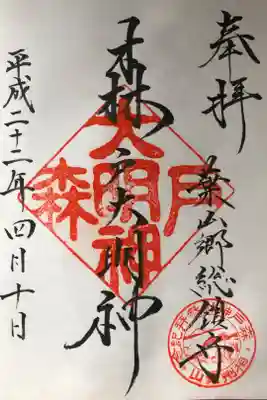 奉拝
葉山郷総鎮守
森戸大明神
平成二十二年四月十日
大明神
森
戸